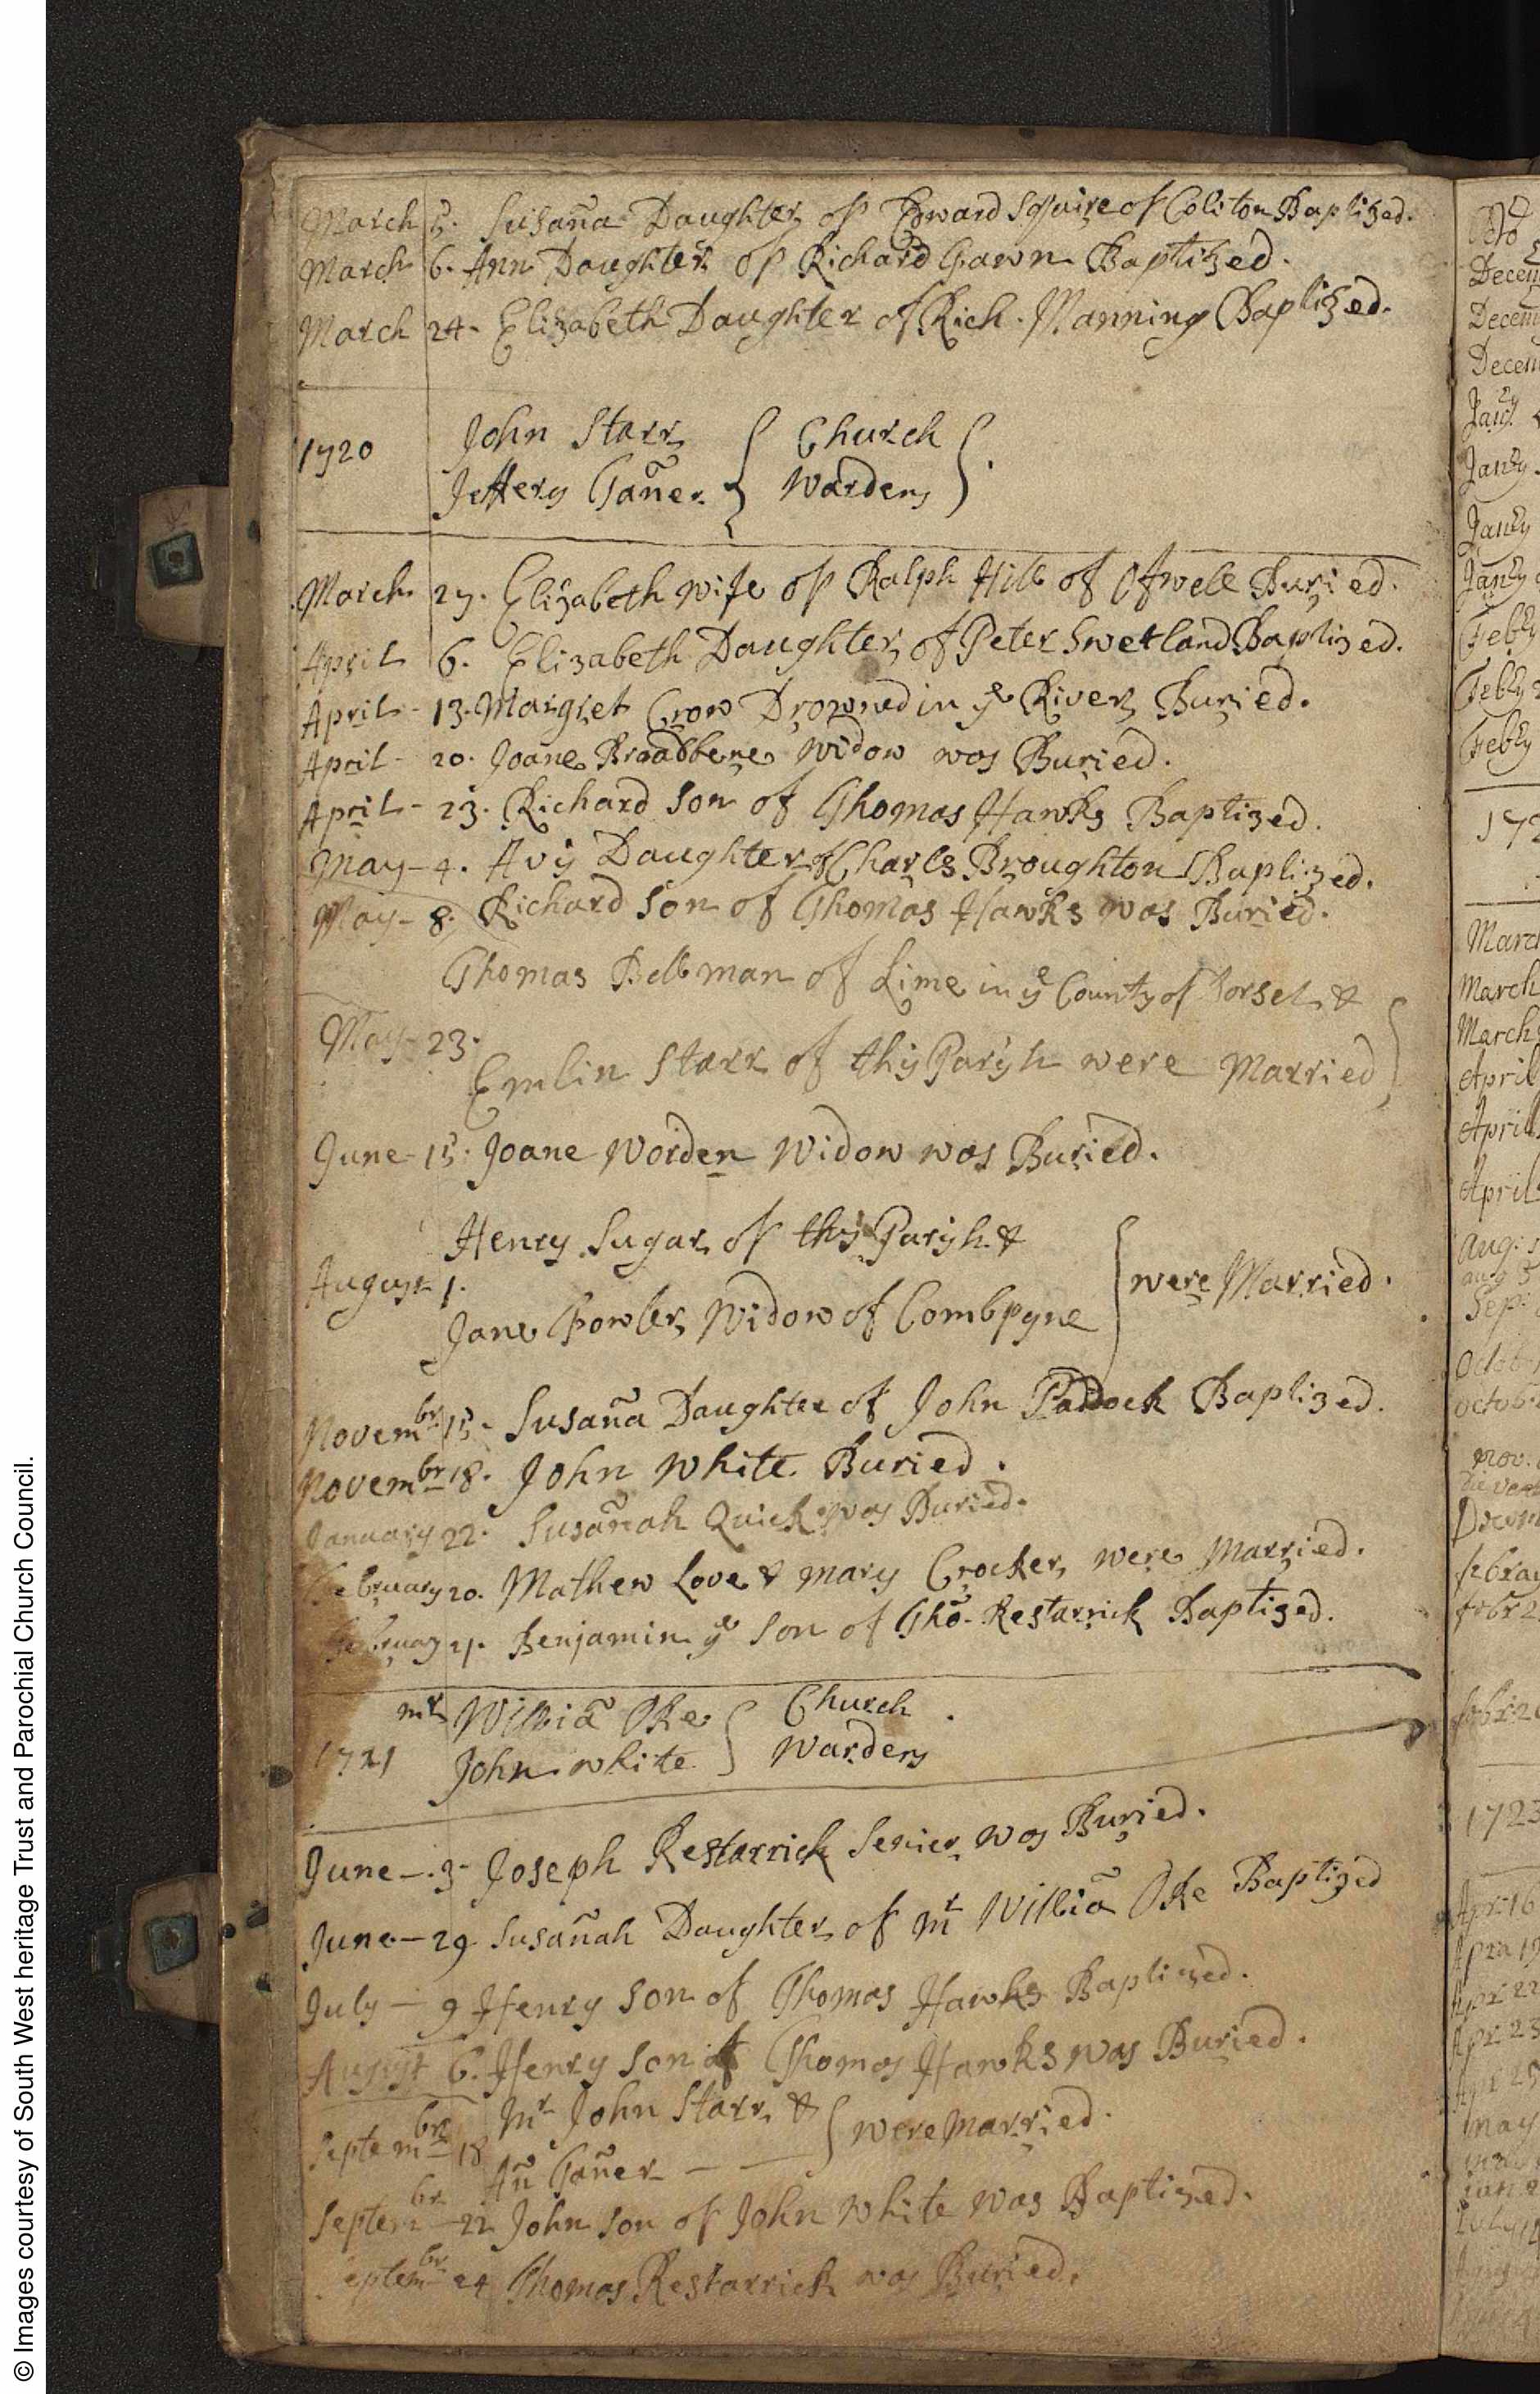 March 5. Susan̄a Daughter of Edward Squire of Coliton Baptized.
March 6. Ann Daughter of Richard Gawn Baptized.
March 24. Elizabeth Daughter of Rich. Manning Baptized.
1720 John Starr Church
Jeffery Gan̄er Wardens
March 27. Elizabeth wife of Ralph Hill of Ofwell Buried.
April 6. Elizabeth Daughter of Peter Swetland Baptized.
April - 13. Margret Crow Drowned in ye River Buried.
April - 20. Joane Broadbere Widow was Buried.
April - 23. Richard Son of Thomas Hawks Baptized.
May - 4. Avy Daughter of Charls Broughton Baptized.
May - 8. Richard Son of Thomas Hawks was Buried.
Thomas Bellman of Lime in ye County of Dorset &
May - 23.
Emlin Starr of this Parish were Married
June - 15. Joane Worden Widow was Buried.
Henry Sugar of this Parish &
August 1. were Married.
Jane Fowler Widow of Combpyne
Novembr 15. Susan̄a Daughter of John Paddock Baptized.
Novembr 18. John White Buried.
January 22. Susan̄ah Quick was Buried.
February 20. Mathew Love & Mary Crocker were Married.
February 21. Benjamin ye Son of Tho. Restarrick Baptized.
mr Williā Oke Church
1721 John White Wardens
June - 3 - Joseph Restarrick Senier was Buried.
June - 29 Susan̄ah Daughter of mr Williā Oke Baptized
July - 9 Henry Son of Thomas Hawks Baptized.
August 6. Henry Son of Thomas Hawks was Buried.
Septembr 18 Mr John Starr & were Married.
An̄ Gan̄er
Septembr - 22 John son of John White was Baptized.
Septembr 24 Thomas Restarrick was Buried.
© Images courtesy of South West heritage Trust and Parochial Church Council.